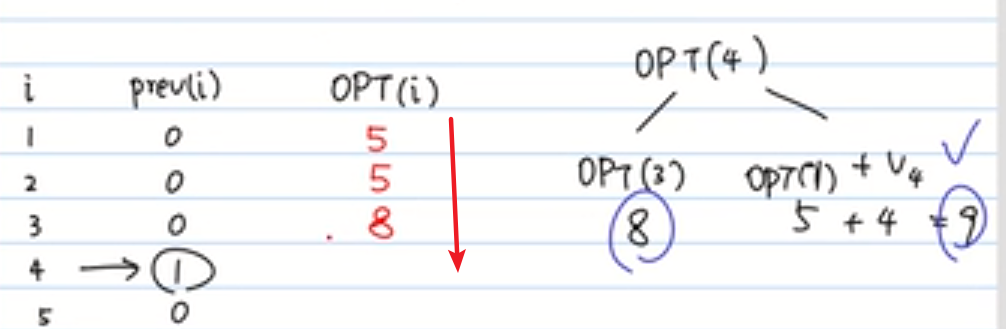 i prev(i) OPT(i)
1 0 5
2 0 5
3 0 . 8
4 → 1
5 0
OPT(4)
OPT(3) OPT(1) + V4 ✓
8 5 + 4 = 9